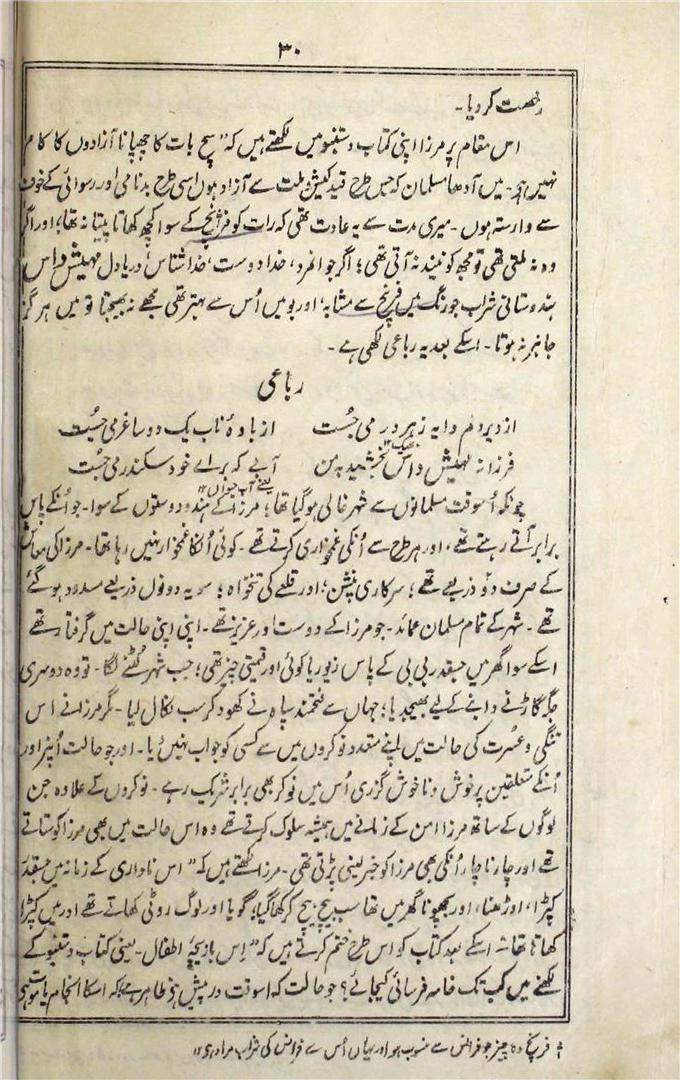 ۳۰
رخصت کردیا۔
اس مقام پر مرزا اپنی کتاب دستنبو میں لکھتے ہیں کہ "سچ بات کا چھپانا آزادوں کا کام
نہیں ہی۔ میں آدھا مسلمان کہ جس طرح قید کیش و ملت سے آزاد ہوں اسی طرح بدنامی اور رسوائی کے خوف
سے وارستہ ہوں۔ میری مدت سے یہ عادت تھی کہ رات کو فرنچ کے سوا کچھ کھاتا پیتا نہ تھا؛ اور اگر
وہ نہ ملتی تھی تو مجھ کو نیند نہ آتی تھی؛ اگر جوانمرد، خدا دوست، خدا شناس، دریا دل مہیش داس
ہندوستانی شراب جو رنگ میں فرنچ سے مشابہ؛ اور بو میں اُس سے بہتر تھی مجھے نہ بھیجتا تو میں ہرگز
جانبر نہ ہوتا۔ اسکے بعد یہ رباعی لکھی ہے۔
رباعی
از دیر دلم دایہ زہر در می جُست از بادۂ ناب یک دو ساغر می جُست
فرزانہ مہیش داس بخشید بہ من آبے کہ براے خود سکندر می جُست
یعنے آب حیواں ۱۲
چونکہ اُسوقت مسلمانوں سے شہر خالی ہوگیا تھا؛ مرزا کے ہندو دوستوں کے سوا۔ جو اُنکے پاس
برابر آتے رہتے تھے، اور ہر طرح سے اُنکی غمخواری کرتے تھے۔ کوئی اُنکا غمخوار نہیں رہا تھا۔ مرزا کی معاش
کے صرف دو ذریعے تھے؛ سرکاری پنشن؛ اور قلعے کی تنخواہ؛ سو یہ دونوں ذریعے مسدود ہو گئے
تھے۔ شہر کے تمام مسلمان عمائد۔ جو مرزا کے دوست اور عزیز تھے۔ اپنی اپنی حالت میں گرفتار تھے
اسکے سوا گھر میں جسقدر بی بی کے پاس زیور یا کوئی اور قیمتی چیز تھی؛ جب شہر لُٹنے لگا۔ تو وہ دوسری
جگہ گاڑنے دابنے کے لیے بھیجدیا؛ جہاں سے فتحمند سپاہ نے کھود کر سب نکال لیا۔ مگر مرزا نے اس
تنگی و عسرت کی حالت میں اپنے متعدد نوکروں میں سے کسی کو جواب نہیں دیا۔ اور جو حالت اُنپر اور
اُنکے متعلقین پر خوش و ناخوش گزری اُس میں نوکر بھی برابر شریک رہے۔ نوکروں کے علاوہ جن
لوگوں کے ساتھ مرزا امن کے زمانے میں ہمیشہ سلوک کرتے تھے وہ اس حالت میں بھی مرزا کو ستاتے
تھے اور چار ناچار اُنکی بھی مرزا کو خبر لینی پڑتی تھی۔ مرزا لکھتے ہیں کہ "اس ناداری کے زمانہ میں جسقدر
کپڑا، اوڑھنا، اور بچھونا گھر میں تھا سب بیچ بیچ کر کھا گیا؛ گویا اور لوگ روٹی کھاتے تھے اور میں کپڑا
کھاتا تھا" اسکے بعد کتاب کو اس طرح ختم کرتے ہیں کہ "اِس بازیچۂ اطفال۔ یعنی کتاب دستنبو کے
لکھنے میں کب تک خامہ فرسائی کیجائے؟ جو حالت کہ اسوقت درپیش ہی ظاہر ہے کہ اسکا انجام یا موت ہی
فرنچ وہ چیز جو فرانس سے منسوب ہو اور یہاں اُس سے فرانس کی شراب مراد ہی ۱۲